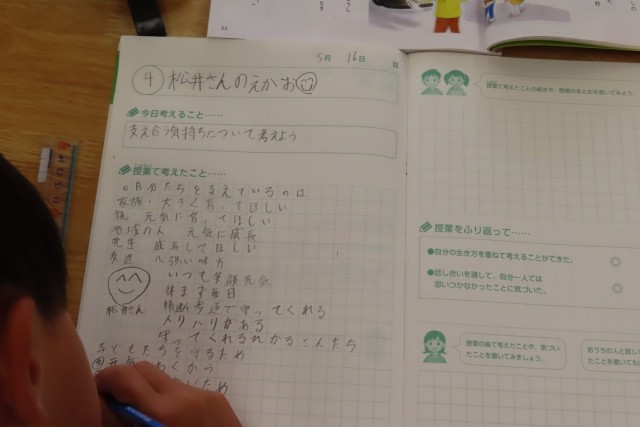 5月 16日
4 松井さんのえがお
今日考えること……
支え合う気持ちについて考えよう
授業で考えたこと……
自分たちを支えているのは
家族・大きく育ってほしい
親・元気に育ってほしい
地域の人 元気に成長
先生 成長してほしい
友達 心強い味方
いつも笑顔元気
休まず毎日
松井さん 横断歩道で守ってくれる
メリハリがある
守ってくれるれかるこんたち
子どもたちを守るため
元気 わくから
ため
授業で考えたことの続きや、授業のまとめを書いてみよう
授業をふり返って……
●自分の生き方を重ねて考えることができた。
●話し合いを通して、自分一人では
思いつかなかったことに気づいた。
授業の後で考えたことや、気づい
たことを書いてみましょう。
おうちの人と話し
たことを書いても